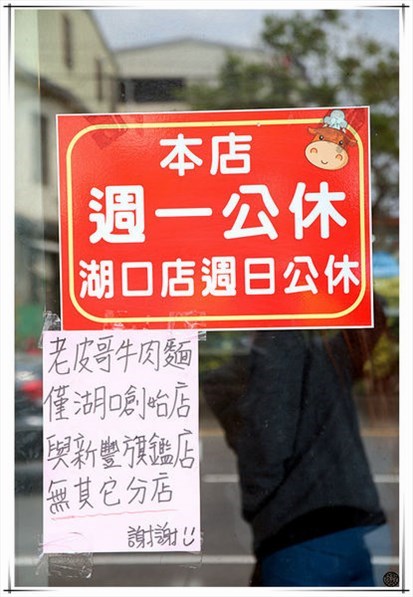 本店
週一公休
湖口店週日公休
老皮哥牛肉麵
僅湖口創始店
與新豐旗鑑店
無其它分店
謝謝